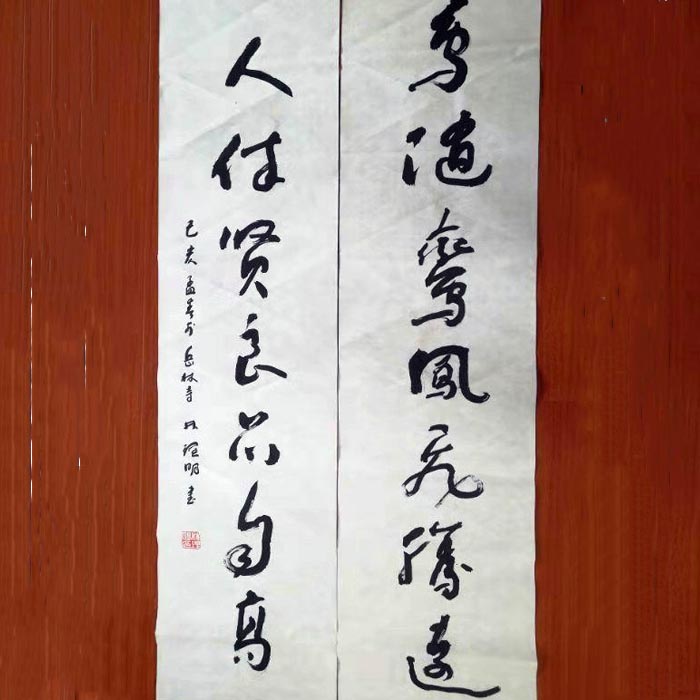 鸟随鸾凤飞腾远
人伴贤良品自高
己亥孟春于岳林寺 明书